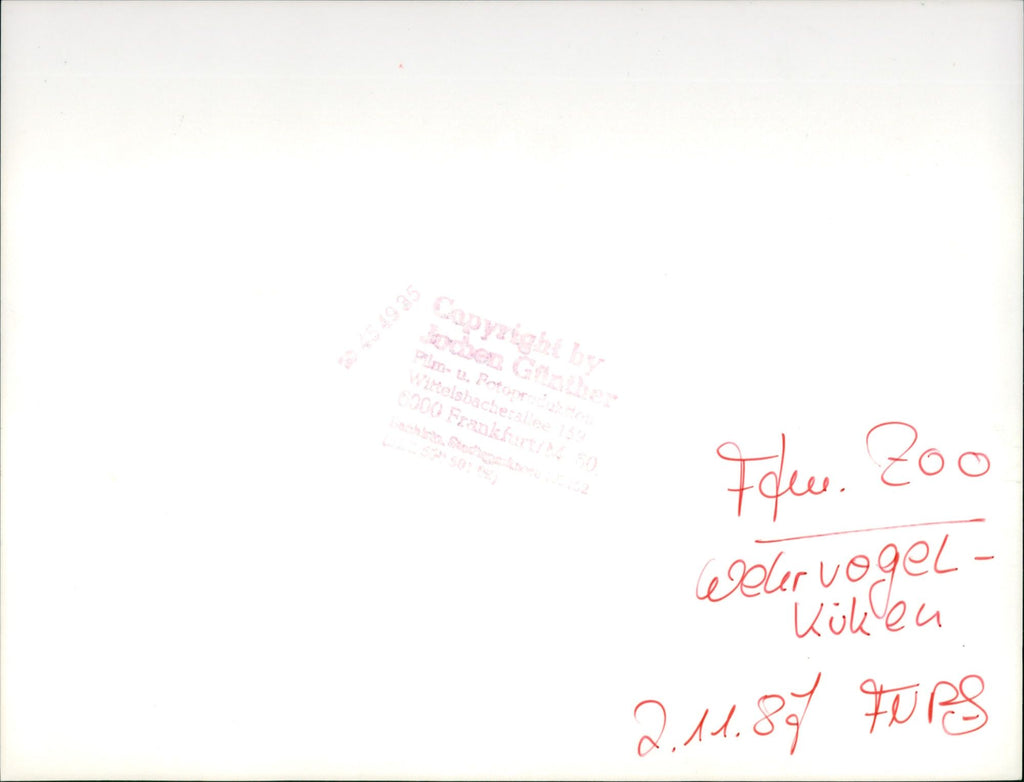 Copyright by
Jochen Günther
Film- u. Fotoproduktion
Wittelsbacherallee 159
6000 Frankfurt/M. 60
Ffm. Zoo
Wehrvogel-
Küken
2.11.87 FNPS